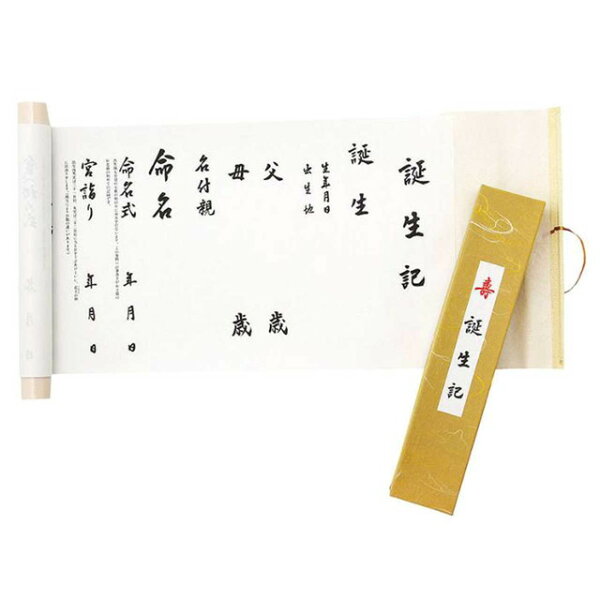 誕生記
誕生
生年月日
出生地
父 歳
母 歳
名付親
命名
命名式 年月日
宮詣り 年月日
寿
誕生記